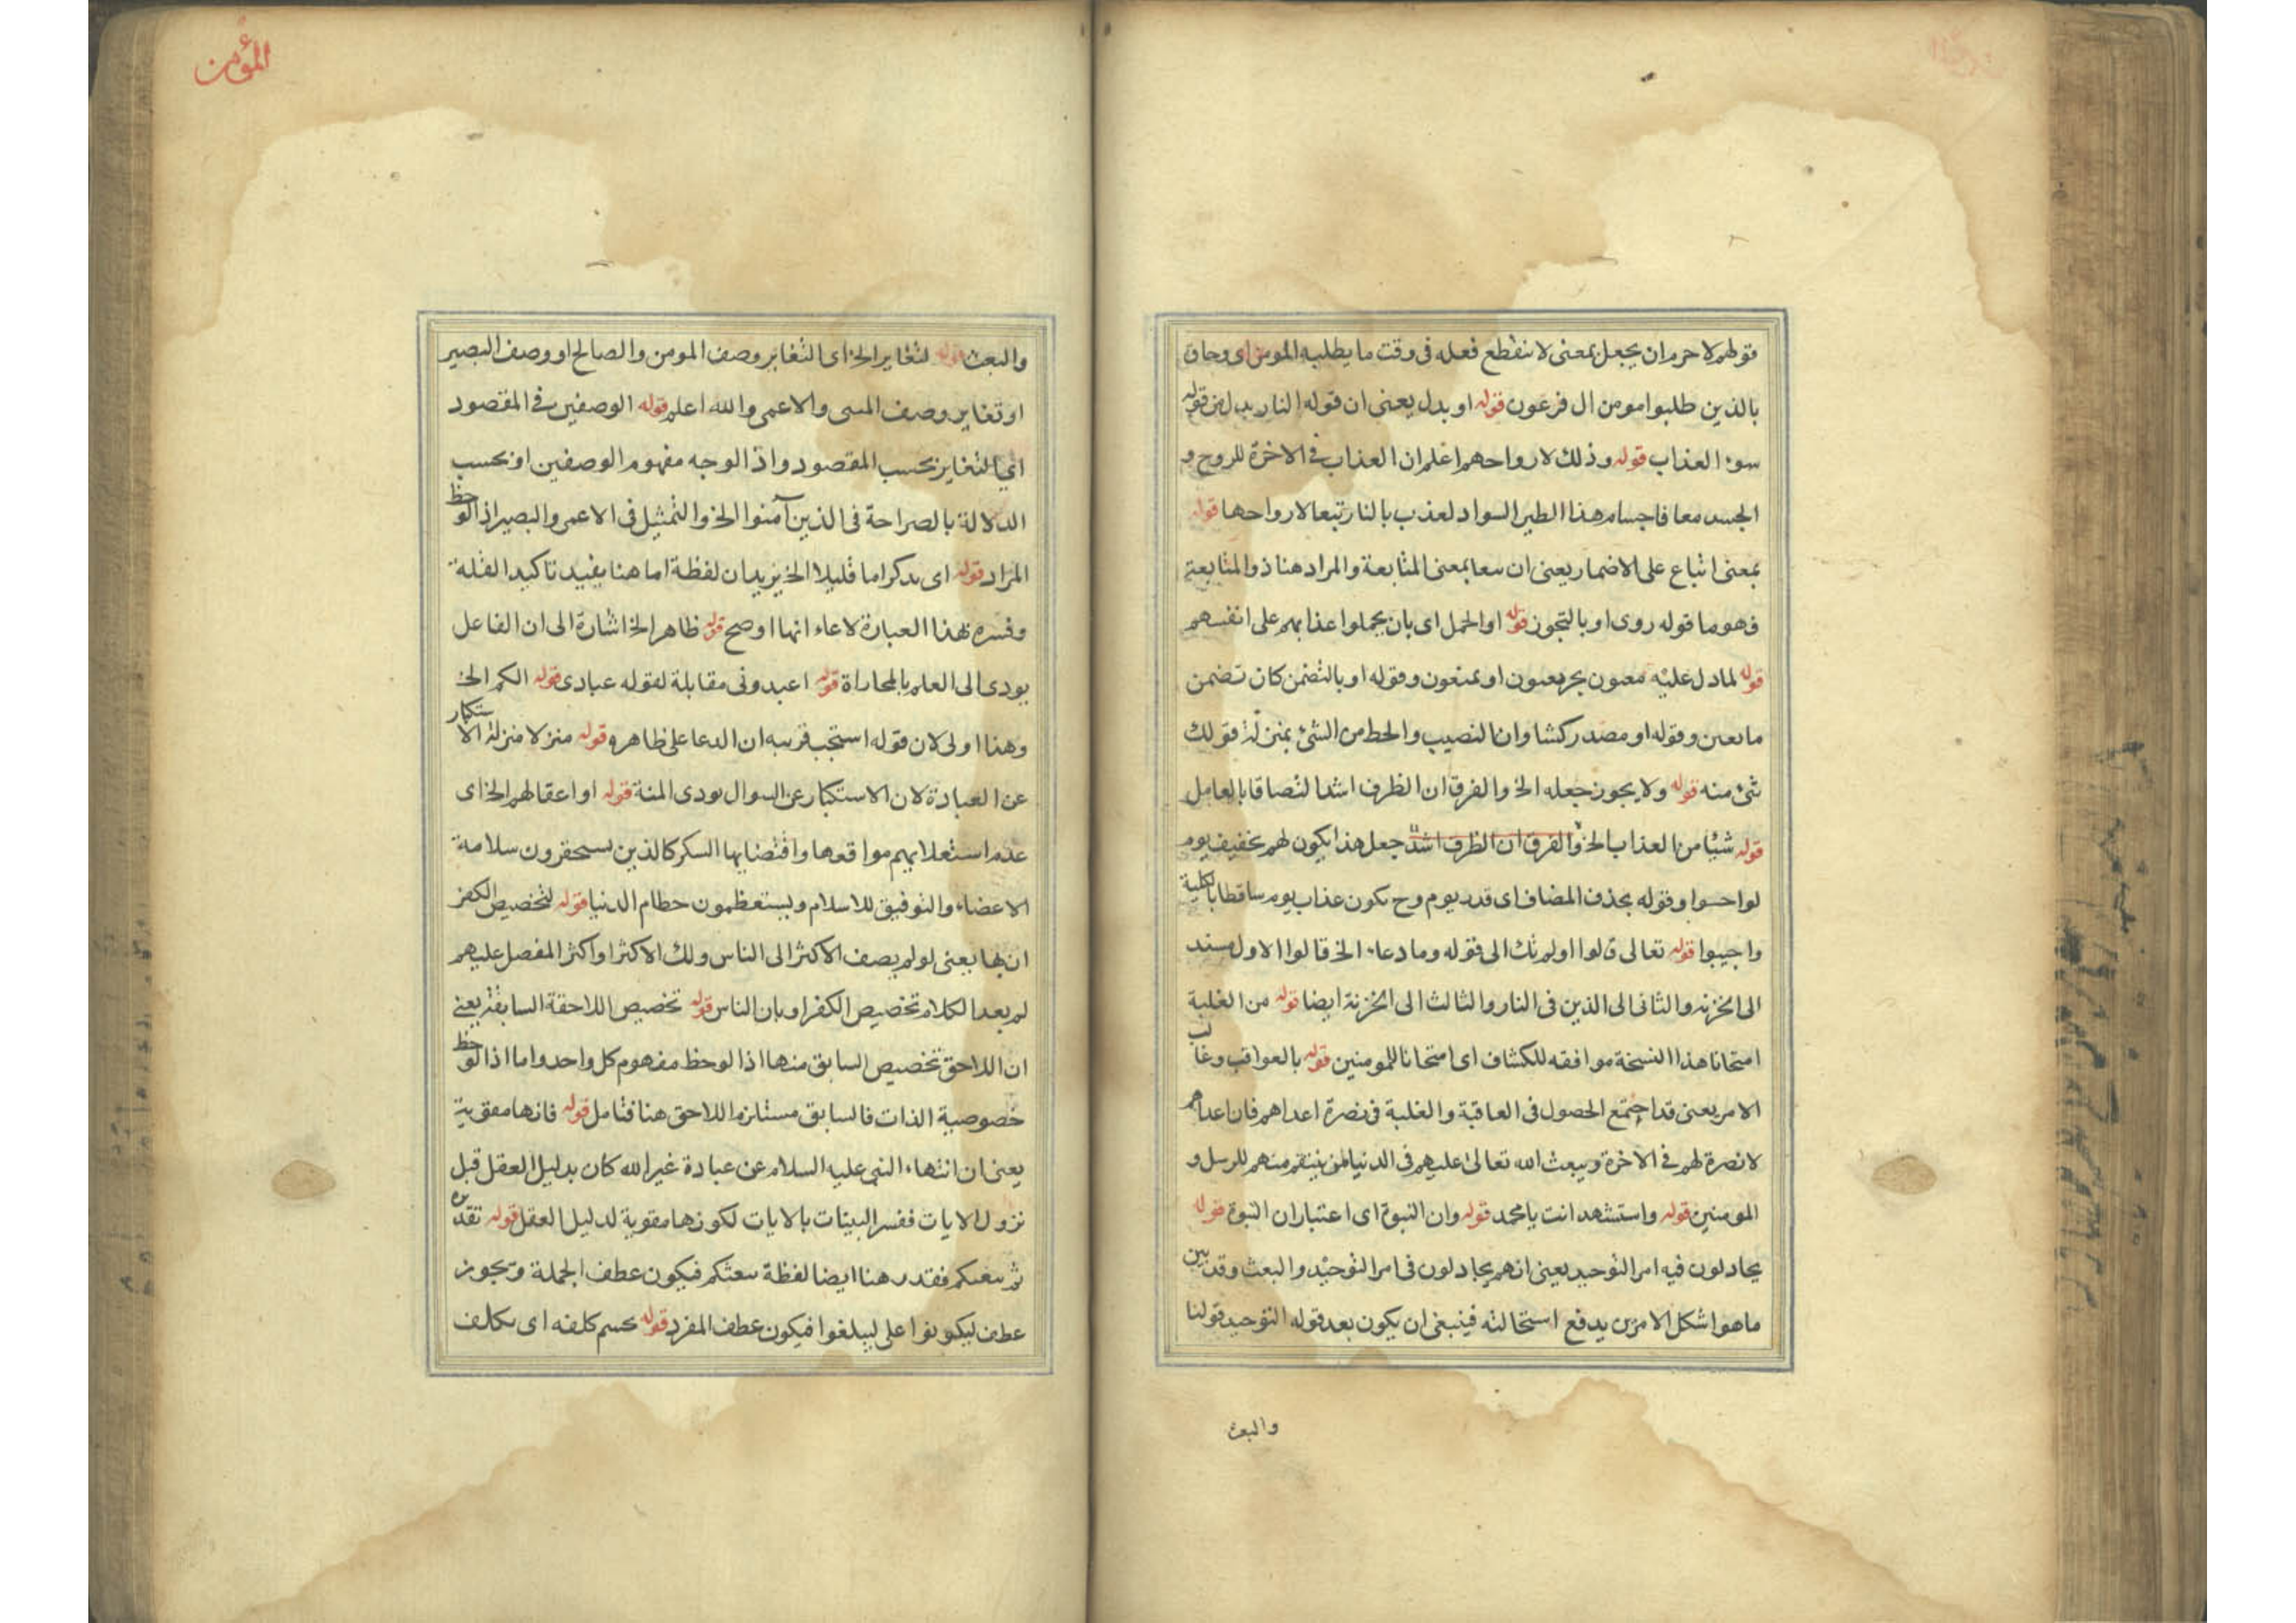 قولهم لا جرم ان يجعل بمعنى لا ينقطع فعله فى وقت ما يطلبه المومن اى وحاق
بالذين طلبوا مومن ال فرعون قوله او بدل يعنى ان قوله النار بدل من قوله
سوء العذاب قوله وذلك لارواحهم اعلم ان العذاب فى الاخرة للروح و
الجسد معا فاجسام هذا الطير السواد لعذب بالنار تبعا لارواحها قوله
بمعنى اتباع على الاضمار يعنى ان تبعا بمعنى المتابعة والمراد هنا ذو المتابعة
فهو ما قوله روى او بالتجوز قوله او الحمل اى بان يحملوا عذابهم على انفسهم
قوله لما دل عليه مغنون او يمنعون وقوله او بالتضمن كان تضمن
وقوله او مصدر كشا وان النصيب والحط من الشئ بمنزلة قولك
شئ منه قوله ولا يجوز جعله الخ والفرق ان الظرف اشد التصاقا بالعامل
قوله شيئا من العذاب الخ والفرق ان الظرف اشد جعل هذا يكون لهم تخفيف يوم
لو احسوا وقوله بحذف المضاف اى قدر يوم وح يكون عذاب يوم ساقطا بالكلية
واجيبوا قوله تعالى قالوا اولم تك الى قوله وما دعاء الخ قالوا الاول مسند
الى الخزنه والثانى الى الذين فى النار والثالث الى الخزنة ايضا قوله من الغلبة
امتحانا هذا النسخة موافقه للكشاف اى امتحانا للمومنين قوله بالعواقب وغالب
الامر يعنى قد اجتمع الحصول فى العاقبة والغلبة فى نصرة اعداهم فان اعداهم
لا نصرة لهم فى الاخرة ويبعث الله تعالى عليهم فى الدنيا لمن ينتقم منهم للرسل و
المومنين قوله واستشهد انت يا محمد قوله وان النبوة اى اعتبار ان النبوة قوله
يجادلون فيه امر التوحيد يعنى انهم يجادلون فى امر التوحيد والبعث وقد بين
ما هو اشكل الامرين يدفع استحالته فينبغى ان يكون بعد قوله التوحيد قولنا
والبعث
المؤمن
والبعث قوله لتغاير الخ اى التغاير وصف المومن والصالح او وصف البصير
او تغاير وصف المسى والاعمى والله اعلم قوله الوصفين فى المقصود
اى التغاير بحسب المقصود واذ الوجه مفهوم الوصفين او بحسب
الدلالة بالصراحة فى الذين آمنوا الخ والتمثيل فى الاعمى والبصير اذ لوحظ
المراد قوله اى تذكرا ما قليلا الخ يزيد ان لفظة اما هنا يفيد تاكيد القلة
وفسره بهذا العبارة لادعاء انها اوضح قوله ظاهر الخ اشارة الى ان الفاعل
يودى الى العلم بالمجازاة قوله اعبدونى مقابلة لقوله عبادى قوله الكم الخ
وهذا اولى لان قوله استجب قرينه ان الدعا على ظاهره قوله منزلا منزلة الاستكبار
عن العبادة لان الاستكبار عن السوال يودى المنة قوله او اعقالهم الخ اى
عدم استعلائهم مواقعها واقتضايها السكر كالذين يستحقرون سلامة
الاعضاء والتوفيق للاسلام ويستعظمون حطام الدنيا قوله لتخصيص الكفر
ان بها يعنى لو لم يصف الاكثر الى الناس ولك الاكثر او اكثر المفضل عليهم
لم يعد الكلام تخصيص الكفر او بان الناس قوله تخصيص اللاحقة السابقة يعنى
ان اللاحق تخصيص السابق منها اذا لوحظ مفهوم كل واحد واما اذا لوحظ
خصوصية الذات فالسابق مستلزم اللاحق هنا فتامل قوله فانها مقوية
يعنى ان انتهاء النبى عليه السلام عن عبادة غير الله كان بدليل العقل قبل
نزول الايات ففسر البينات بالايات لكونها مقوية لدليل العقل قوله تقديره
ثم يبعثكم فقدر هنا ايضا لفظة يبعثكم فيكون عطف الجملة ويجوز
عطف ليكونوا على ليبلغوا فيكون عطف المفرد قوله كلفه اى تكلف